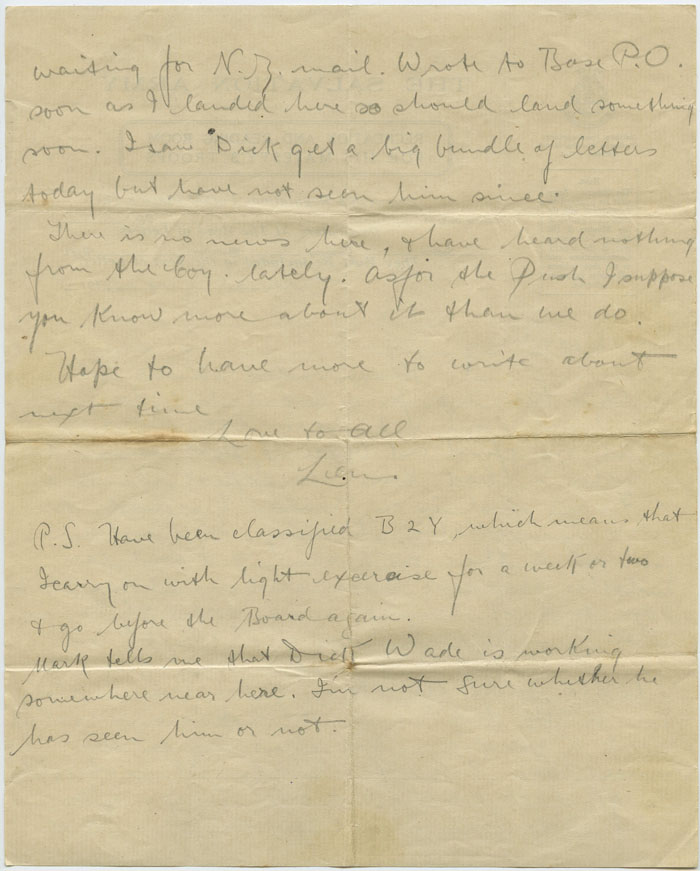 waiting for N.Z. mail. Wrote to Base P.O.
soon as I landed here so should land something
soon. I saw Dick get a big bundle of letters
today but have not seen him since.
There is no news here, & have heard nothing
from the Coy. lately. As for the Push I suppose
you know more about it than we do.
Hope to have more to write about
next time
Love to all
Len.
P.S. Have been classified B2Y, which means that
I carry on with light exercise for a week or two
& go before the Board again.
Mark tells me that Dick Wade is working
somewhere near here. I'm not sure whether he
has seen him or not.